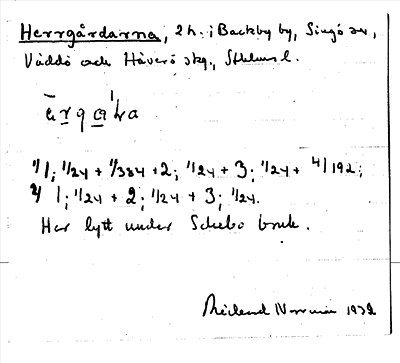 Herrgårdarna, 2 h. i Backby by, Singö sn,
Väddö och Häverö skg., Sthlms l.
1/1; 1/24 + 1/384 + 2; 1/24 + 3; 1/24 + 4/192;
1; 1/24 + 2; 1/24 + 3; 1/24.
Har lytt under Schebo bruk.
Rickard 1932